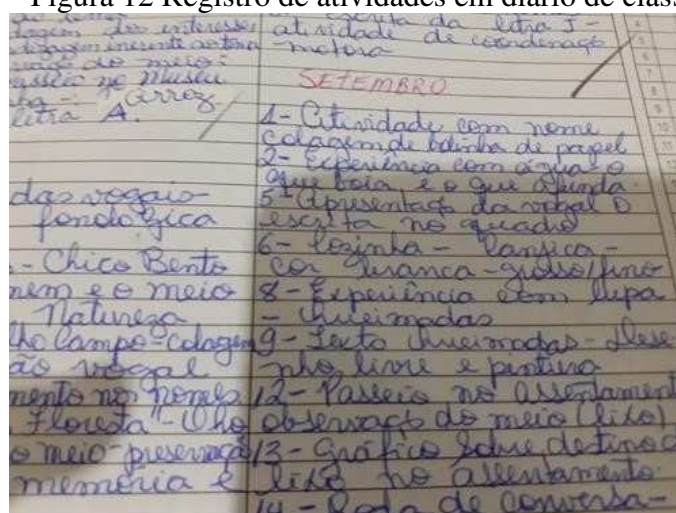 Figura 12 Registro de atividades em diário de class
dos interesses
inerente
do meio:
no Museu
Arroz
letra A.
das vogais
fonológica
- Chico Bento
e o meio
Natureza
Campo - colagem
vogal
nos nomes
Floresta" - Olho
o meio - preservaçã
memória e
escrita da letra J -
atividade de coordenaçã
motora
SETEMBRO
1 - Atividade com nome
colagem de bolinha de papel
2 - Experiência com água - O
que boia, e o que afunda.
5 - Apresentaçã da vogal O
escrita no quadro
6 - Cozinha - Canjica -
cor branca - grosso/fino
8 - Experiência com lupa
- Queimadas
9 - Texto Queimadas - Dese
nho livre e pintura
12 - Passeio no assentament
observaçã do meio (lixo)
13 - Gráfico sobre destino d
lixo no assentamento.
14 - Roda de conversa -